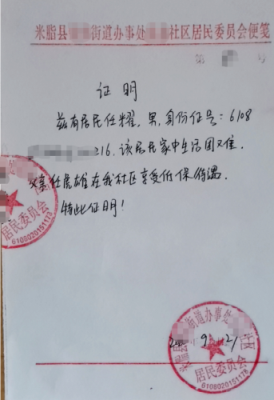 米脂县街道办事处社区居民委员会便笺
第 号
证明
兹有居民任耀,男,身份证号:6108
216,该居民家中生活困难,
任雄在我社区享受低保待遇。
特此证明!
居民委员会
街道办事处
9 21
居民委员会